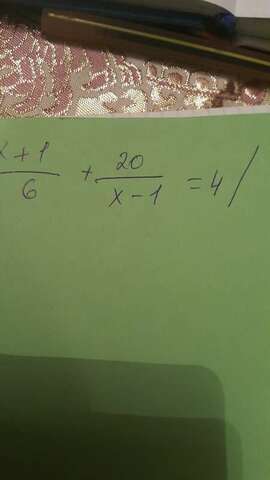 x + 1 / 6 + 20 / x - 1 = 4 /